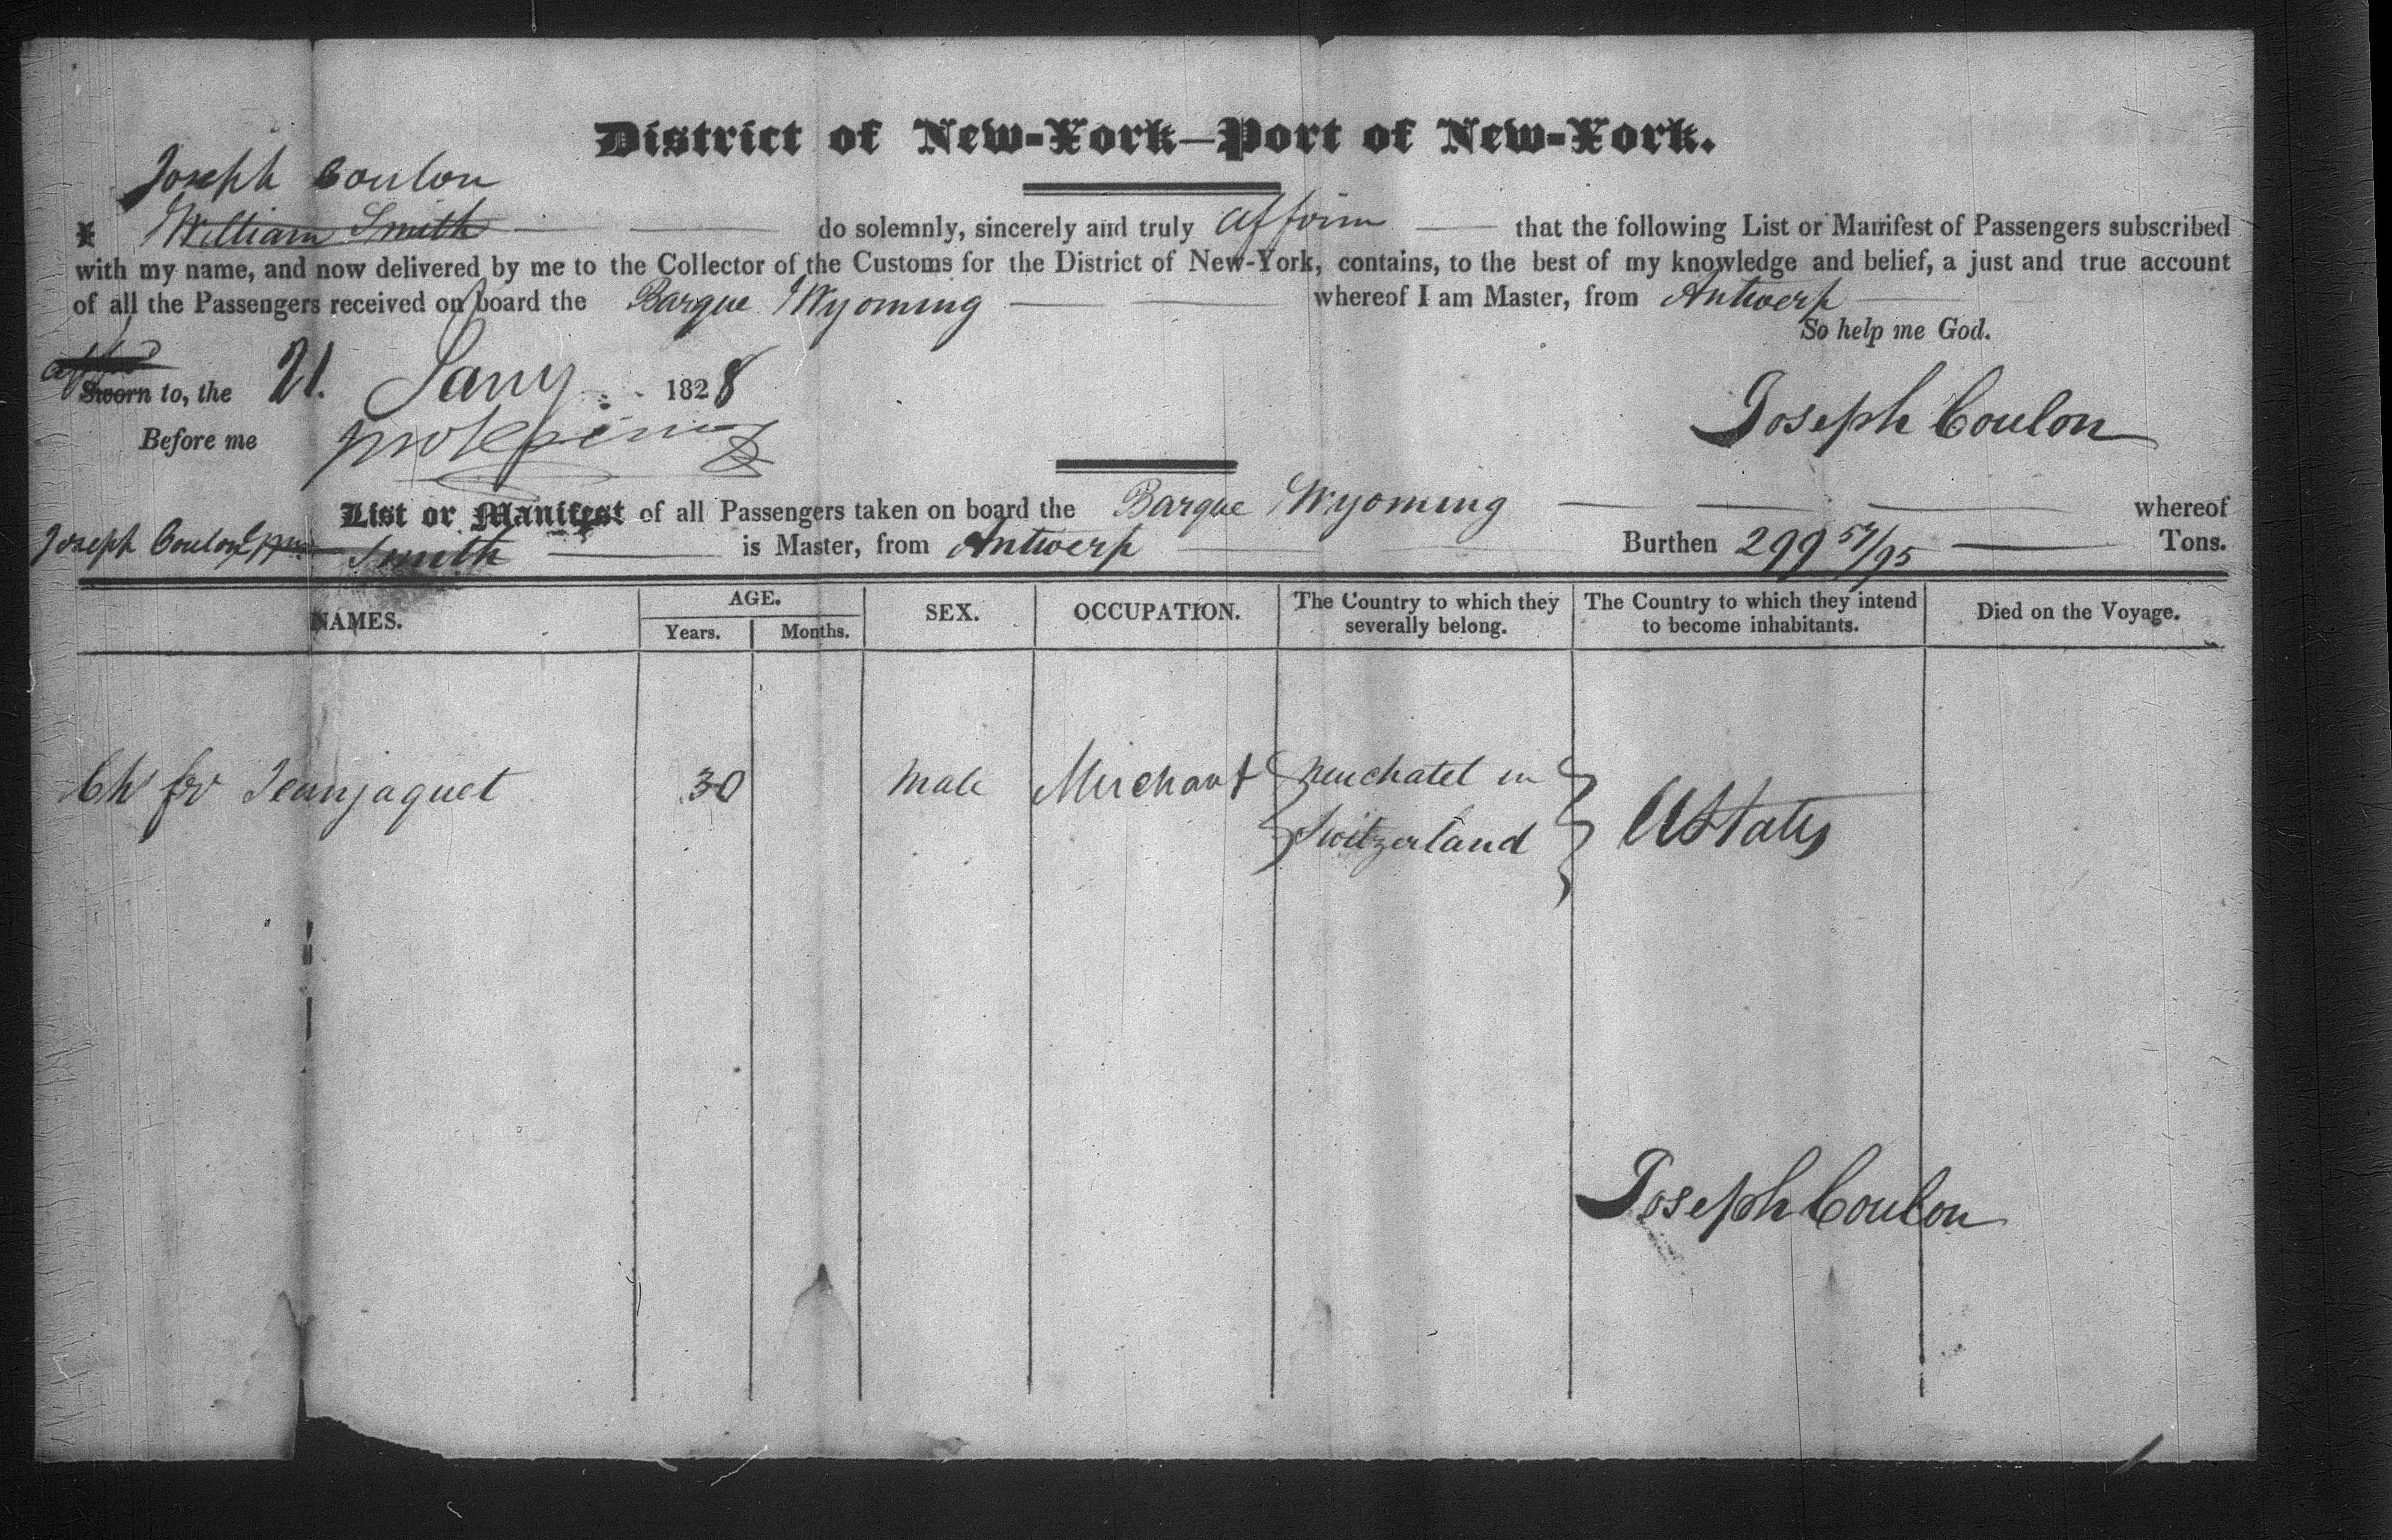 District of New-York—Port of New-York.
Joseph Coulon
I William Smith do solemnly, sincerely and truly affirm that the following List or Manifest of Passengers subscribed
with my name, and now delivered by me to the Collector of the Customs for the District of New-York, contains, to the best of my knowledge and belief, a just and true account
of all the Passengers received on board the Barque Wyoming whereof I am Master, from Antwerp
So help me God.
Sworn to, the 21. Jany 1828
Joseph Coulon
Before me
List or Manifest of all Passengers taken on board the Barque Wyoming whereof
Joseph Coulon Smith is Master, from Antwerp Burthen 299 57/95 Tons.
NAMES. AGE. Years. Months. SEX. OCCUPATION. The Country to which they severally belong. The Country to which they intend to become inhabitants. Died on the Voyage.
Chs fr Jeanjaquet 30 Male Merchant Neuchatel in
Switzerland UStates
Joseph Coulon